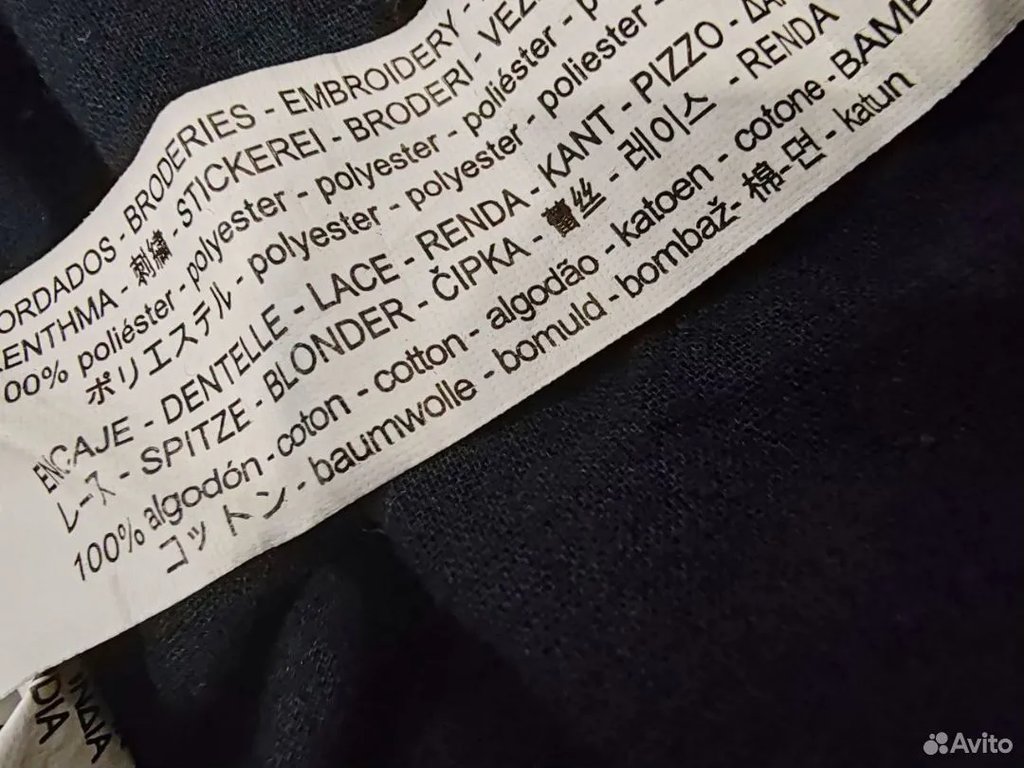 BORDADOS - BRODERIES - EMBROIDERY -
刺繍 - STICKEREI - BRODERI - VEZ
100% poliéster - polyester - polyester - poliéster -
ポリエステル - polyester - polyester - poliester -
ENCAJE - DENTELLE - LACE - RENDA - KANT - PIZZO -
レース - SPITZE - BLONDER - ČIPKA - 蕾丝 - 레이스 - RENDA
100% algodón - coton - cotton - algodão - katoen - cotone -
コットン - baumwolle - bomuld - bombaž- 棉- 면 - katun
INDIA
Avito